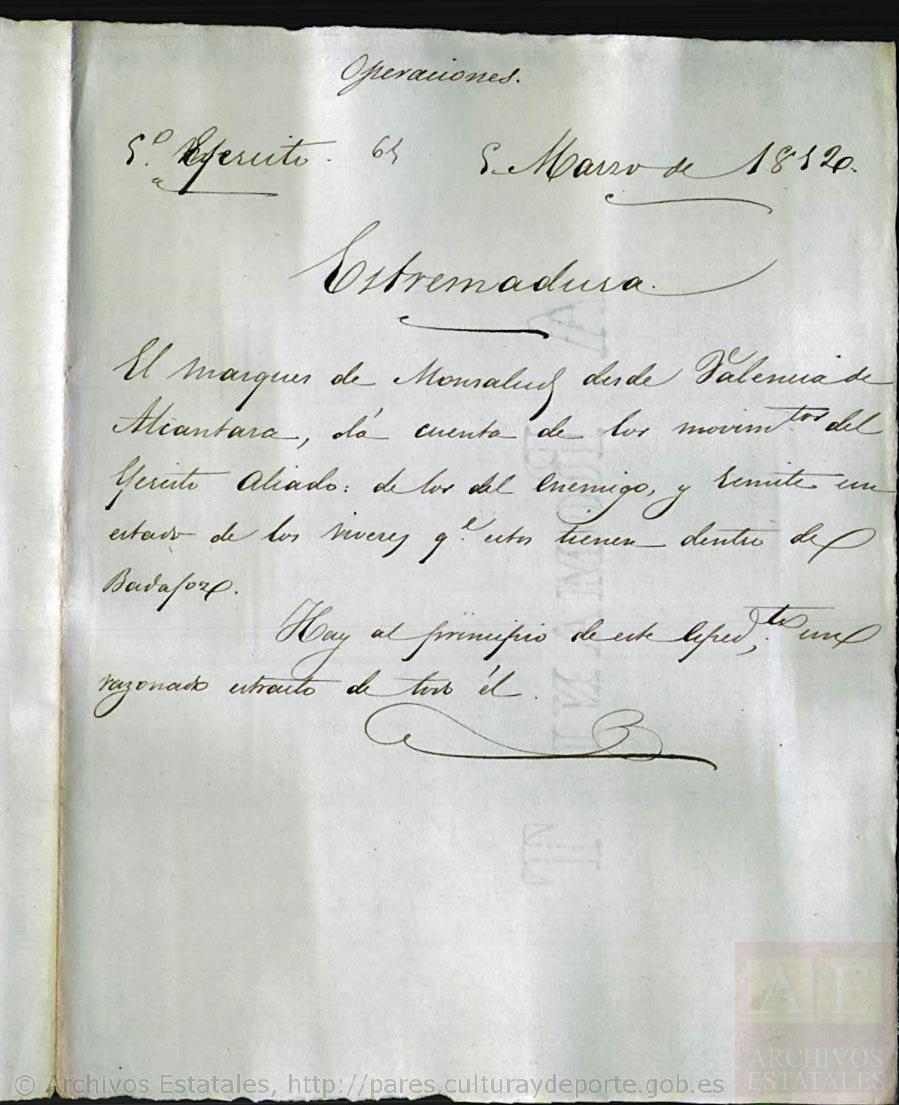 Operaciones.
5.º Ejercito. 65 5. Marzo de 1812.
Estremadura.
El Marques de Monsalud desde Valencia de
Alcantara, dá cuenta de los movim.tos del
Ejercito Aliado: de los del Enemigo, y remite un
estado de los viveres q.e estos tienen dentro de
Badajoz.
Hay al principio de este esped.te un
razonado estracto de todo él.
TINAMORTRA
© Archivos Estatales, http://pares.culturaydeporte.gob.es
AE
ARCHIVOS
ESTATALES